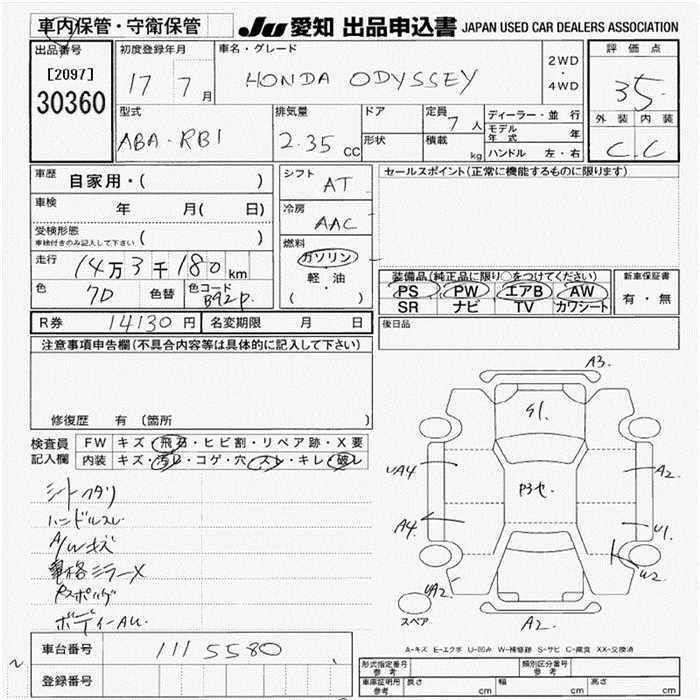 車内保管・守衛保管
JU 愛知 出品申込書 JAPAN USED CAR DEALERS ASSOCIATION
出品番号
[2097]
30360
初度登録年月
17 7 月
車名・グレード
HONDA ODYSSEY
2WD
・
4WD
評価点
3.5
外装 内装
C. C
型式
ABA-RB1
排気量
2.35 cc
ドア
形状
定員
7 人
積載
kg
ディーラー・並行
モデル年式 年
ハンドル 左・右
車歴
自家用・( )
車検
年 月( 日)
受検形態
車検付きのみ記入して下さい ( )
走行
14万3千180 km
色
7D
色替
色コード
B92P.
シフト
AT
冷房
AAC
燃料
ガソリン
軽・油
( )
セールスポイント(正常に機能するものに限ります)
装備品(純正品に限り○をつけてください)
PS PW エアB AW
SR ナビ TV カワシート
新車保証書
有・無
後日品
R券 14130 円
名変期限 月 日
注意事項申告欄(不具合内容等は具体的に記入して下さい)
修復歴 有 (箇所 )
検査員
記入欄
FW キズ・飛石・ヒビ割・リペア跡・X要
内装 キズ・汚れ・コゲ・穴・スレ・キレ・破レ
シートヘタリ
ハンドルスレ
A/Wキズ
ボディーAU.
A3.
G1.
UA4
A2
P3セ
A4
U1
W2
UA2
A2
スペア
A-キズ E-エクボ U-凹み W-補修跡 S-サビ C-腐食 XX-交換済
車台番号
1115580
登録番号
形式指定番号
参考
類別区分番号
参考
車庫証明用
参考
長さ cm
幅 cm
高さ cm